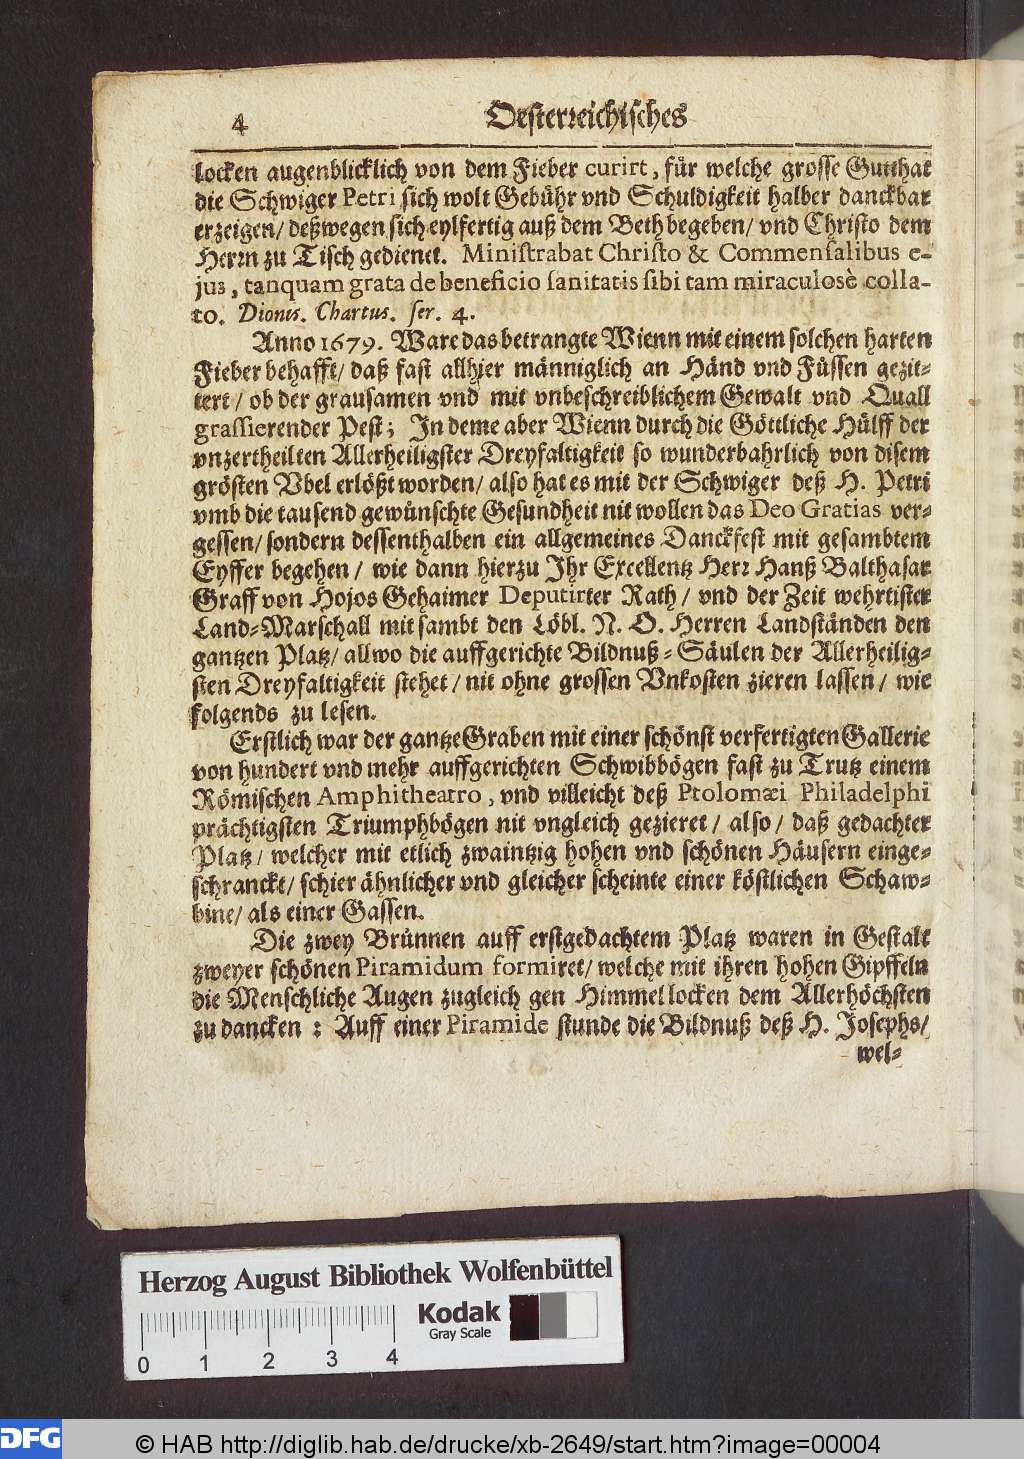 4
Oesterreichisches
locken augenblicklich von dem Fieber curirt, für welche grosse Gutthat
die Schwiger Petri sich wolt Gebühr vnd Schuldigkeit halber danckbar
erzeigen/ deßwegen sich eylfertig auß dem Beth begeben/ vnd Christo dem
Herrn zu Tisch gedienet. Ministrabat Christo & Commensalibus e-
jus, tanquam grata de beneficio sanitatis sibi tam miraculosè colla-
to. Dionis. Chartus. ser. 4.
Anno 1679. Ware das betrangte Wienn mit einem solchen harten
Fieber behafft/ daß fast allhier männiglich an Händ vnd Füssen gezit-
tert/ ob der grausamen vnd mit vnbeschreiblichem Gewalt vnd Quall
grassierender Pest; In deme aber Wienn durch die Göttliche Hülff der
vnzertheilten Allerheiligster Dreyfaltigkeit so wunderbahrlich von disem
grösten Vbel erlößt worden/ also hat es mit der Schwiger deß H. Petri
vmb die tausend gewünschte Gesundheit nit wollen das Deo Gratias ver-
gessen/ sondern dessenthalben ein allgemeines Danckfest mit gesambtem
Eyffer begehen/ wie dann hierzu Ihr Excellentz Herr Hanß Balthasar
Graff von Hojos Gehaimer Deputirter Rath/ vnd der Zeit wehrtister
Land-Marschall mit sambt den Löbl. N. O. Herren Landständen den
gantzen Platz/ allwo die auffgerichte Bildnuß-Säulen der Allerheilig-
sten Dreyfaltigkeit stehet/ nit ohne grossen Vnkosten zieren lassen/ wie
folgends zu lesen.
Erstlich war der gantze Graben mit einer schönst verfertigten Gallerie
von hundert vnd mehr auffgerichten Schwibbögen fast zu Trutz einem
Römischen Amphitheatro, vnd villeicht deß Ptolomæi Philadelphi
prächtigsten Triumphbögen nit vngleich gezieret/ also/ daß gedachter
Platz/ welcher mit etlich zwaintzig hohen vnd schönen Häusern einge-
schranckt/ schier ähnlicher vnd gleicher scheinte einer köstlichen Schaw-
bine/ als einer Gassen.
Die zwey Brünnen auff erstgedachtem Platz waren in Gestalt
zweyer schönen Piramidum formiret/ welche mit ihren hohen Gipffeln
die Menschliche Augen zugleich gen Himmel locken dem Allerhöchsten
zu dancken: Auff einer Piramide stunde die Bildnuß deß H. Josephs/
wel-
Herzog August Bibliothek Wolfenbüttel
Kodak
Gray Scale
0 1 2 3 4
DFG
© HAB http://diglib.hab.de/drucke/xb-2649/start.htm?image=00004